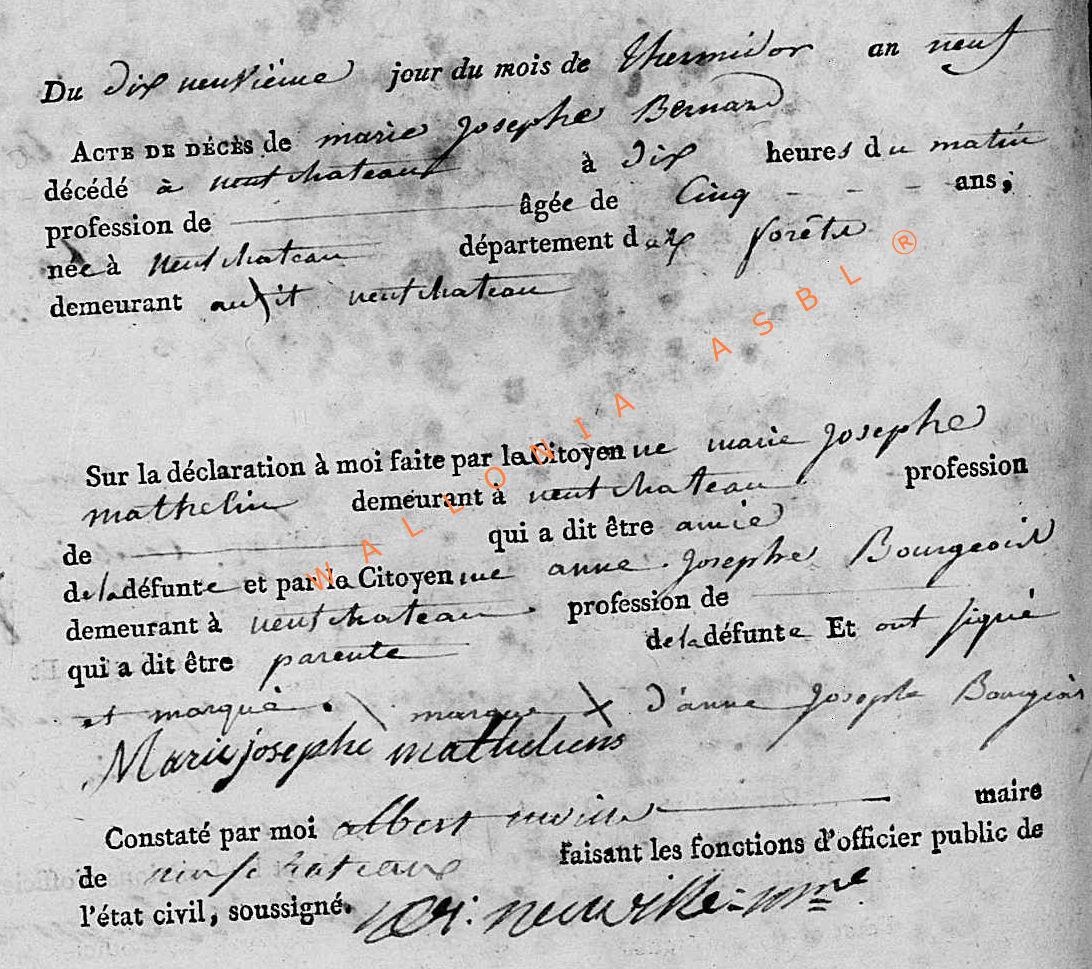 Du dix neuvième jour du mois de thermidor an neuf
ACTE DE DÉCÈS de marie Josephe Bernard
décédé à neufchateau à dix heures du matin
profession de âgée de Cinq - - - ans,
née à neufchateau département des forêts
demeurant audit neufchateau
Sur la déclaration à moi faite par la Citoyenne marie Josephe
mathelin demeurant à neufchateau profession
de qui a dit être amie
de la défunte et par la Citoyenne anne Josephe Bourgeois
demeurant à neufchateau profession de
qui a dit être parente de la défunte Et ont signé
et marqué marque X d'anne Josephe Bourgeois
Marie josephe mathelin
Constaté par moi albert maire
de neufchateau faisant les fonctions d'officier public de
l'état civil, soussigné.
WALLONIA ASBL ®